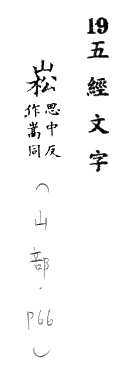 19五經文字
崧思中反
作嵩同
（山部．P66）